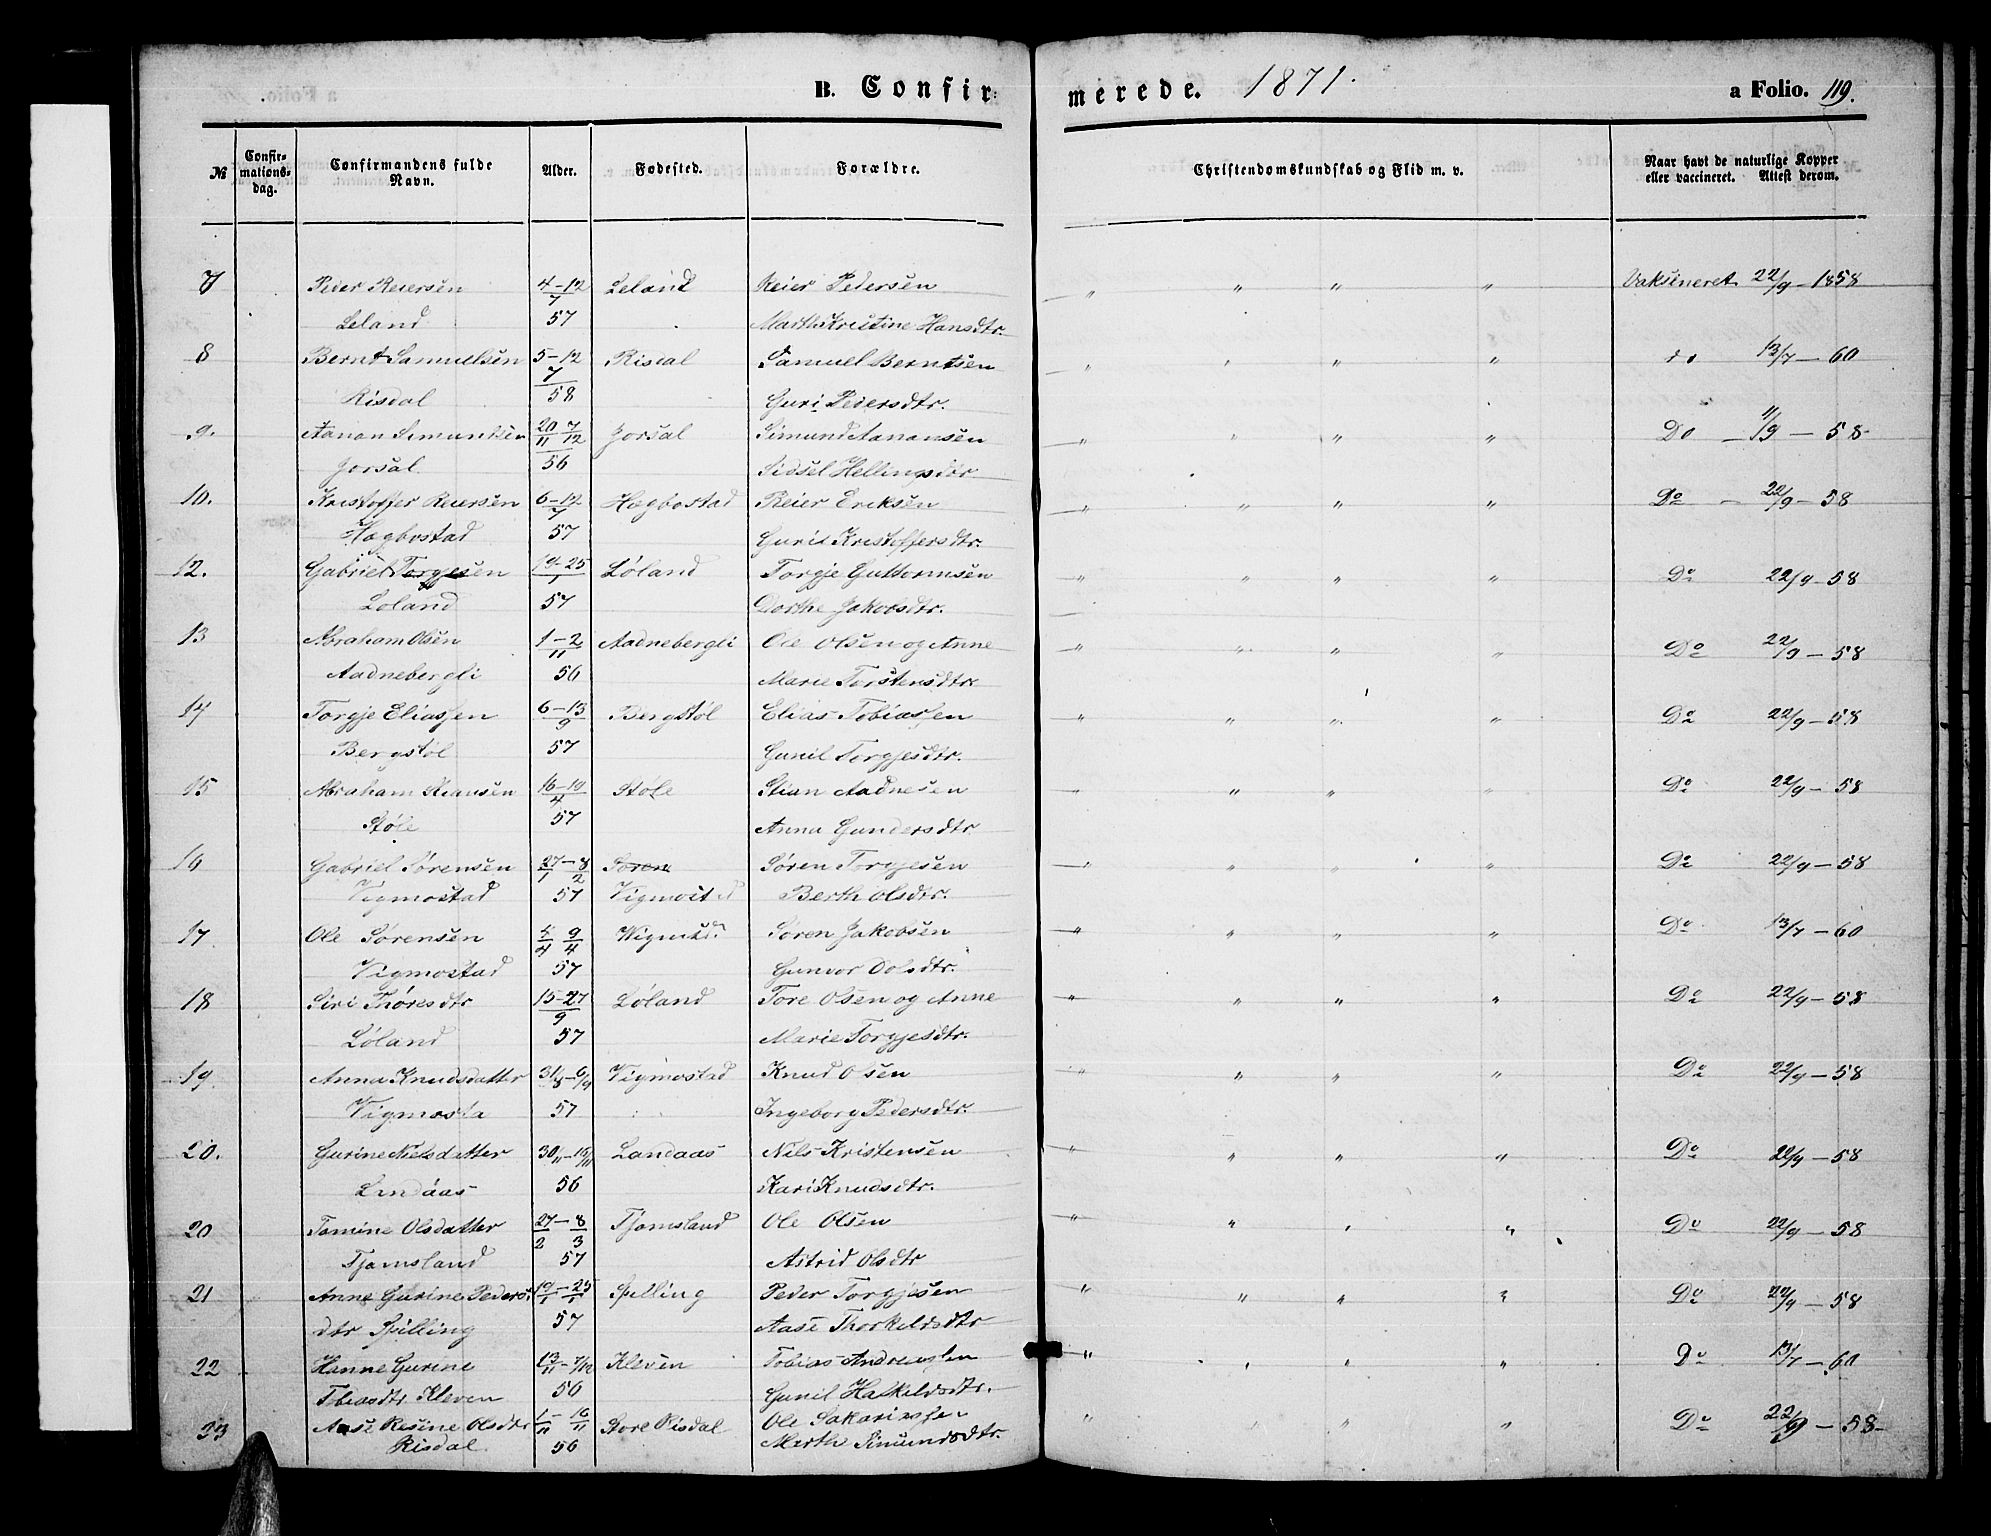 B. Confirmerede. 1871. a Folio. 119.
№ Confirmationsdag. Confirmandens fulde Navn. Alder. Fødested. Forældre. Christendomskundskab og Flid m. v. Naar havt de naturlige Kopper eller vaccineret. Attest derom.
7 Peder Reiersen 4-12/7 Leland Reier Pedersen " " " " Vaksineret 22/9-1858
Leland 57 Marth Kristine Hansdtr.
8 Bernt Samuelsen 5-12 Risdal Samuel Berntsen " " " " do 13/7-60
Risdal 7/58 Guri Pedersdtr.
9. Aanon Simundsen 20/11 7/12 Jorsal Simund Aanansen " " " " Do - 11/9-58-
Jorsal 56 Sidsel Hellingsdtr
10. Kristoffer Reiersen 6-12/7 Hægbostad Reier Eriksen " " " " Do - 22/9-58
Hægbostad 57 Guril Kristoffersdtr.
12. Gabriel Torgjesen 19-25/1 Løland Torgje Guttormsen " " " " Do 22/9-58
Loland 57 Dorthe Jakobsdtr.
13 Abraham Olsen 1-2/11 Aadnebergli Ole Olsen og Anne " " " " Do 22/9-58
Aadnebergli 56 Marie Torstensdtr.
14 Torgje Eliassen 6-13/9 Bergstøl Elias Tobiassen " " " " Do 22/9-58
Bergstøl 57 Gunil Torgjesdtr.
15 Abraham Stiansen 16-19/4 Støle Stian Aadnesen " " " " Do 22/9-58
Støle 57 Anna Gundersdtr
16 Gabriel Sørensen 27/1-8/2 Soren Søren Torgjesen " " " " Do 22/9-58
Vigmostad 57 Vigmostad Berth Olsdtr.
17 Ole Sørensen 5/4 9/4 Vigmstd. Søren Jakobsen " " " " Do 13/7-60
Vigmostad 57 Gunvor Dolsdtr.
18 Siri Thoresdtr 15-27/9 Løland Tore Olsen og Anne " " " " Do 22/9-58
Løland 57 Marie Torgjesdtr.
19 Anna Knudsdatter 31/8-6/9 Vigmostad Knud Olsen " " " " Do 22/9-58
Vigmosta 57 Ingeborg Pedersdtr.
20. Gurine Nielsdatter 30/11-15/11 Landaas Nils Kristensen " " " " Do 22/9-58
Lindaas 56 Kari Knudsdtr.
20 Tomine Olsdatter 27/2-8/3 Tjomsland Ole Olsen " " " " Do 22/9-58
Tjomsland 57 Astrid Olsdtr
21 Anne Gurine Peders. 19/1-25/1 Spilling Peder Torgjesen " " " " Do 22/9-58
dtr Spilling 57 Aase Thorkildsdtr
22 Hanne Gurine 13/11-7/12 Kleven Tobias Andreassen " " " " Do 13/7-60
Tobiasdtr Kleven 56 Gunil Halkildsdtr.
23 Aase Resine Olsdtr 1/11-16/11 Store Risdal Ole Sakariassen " " " " Do 22/9-58-
Risdal 56 Merth Simundsdtr.